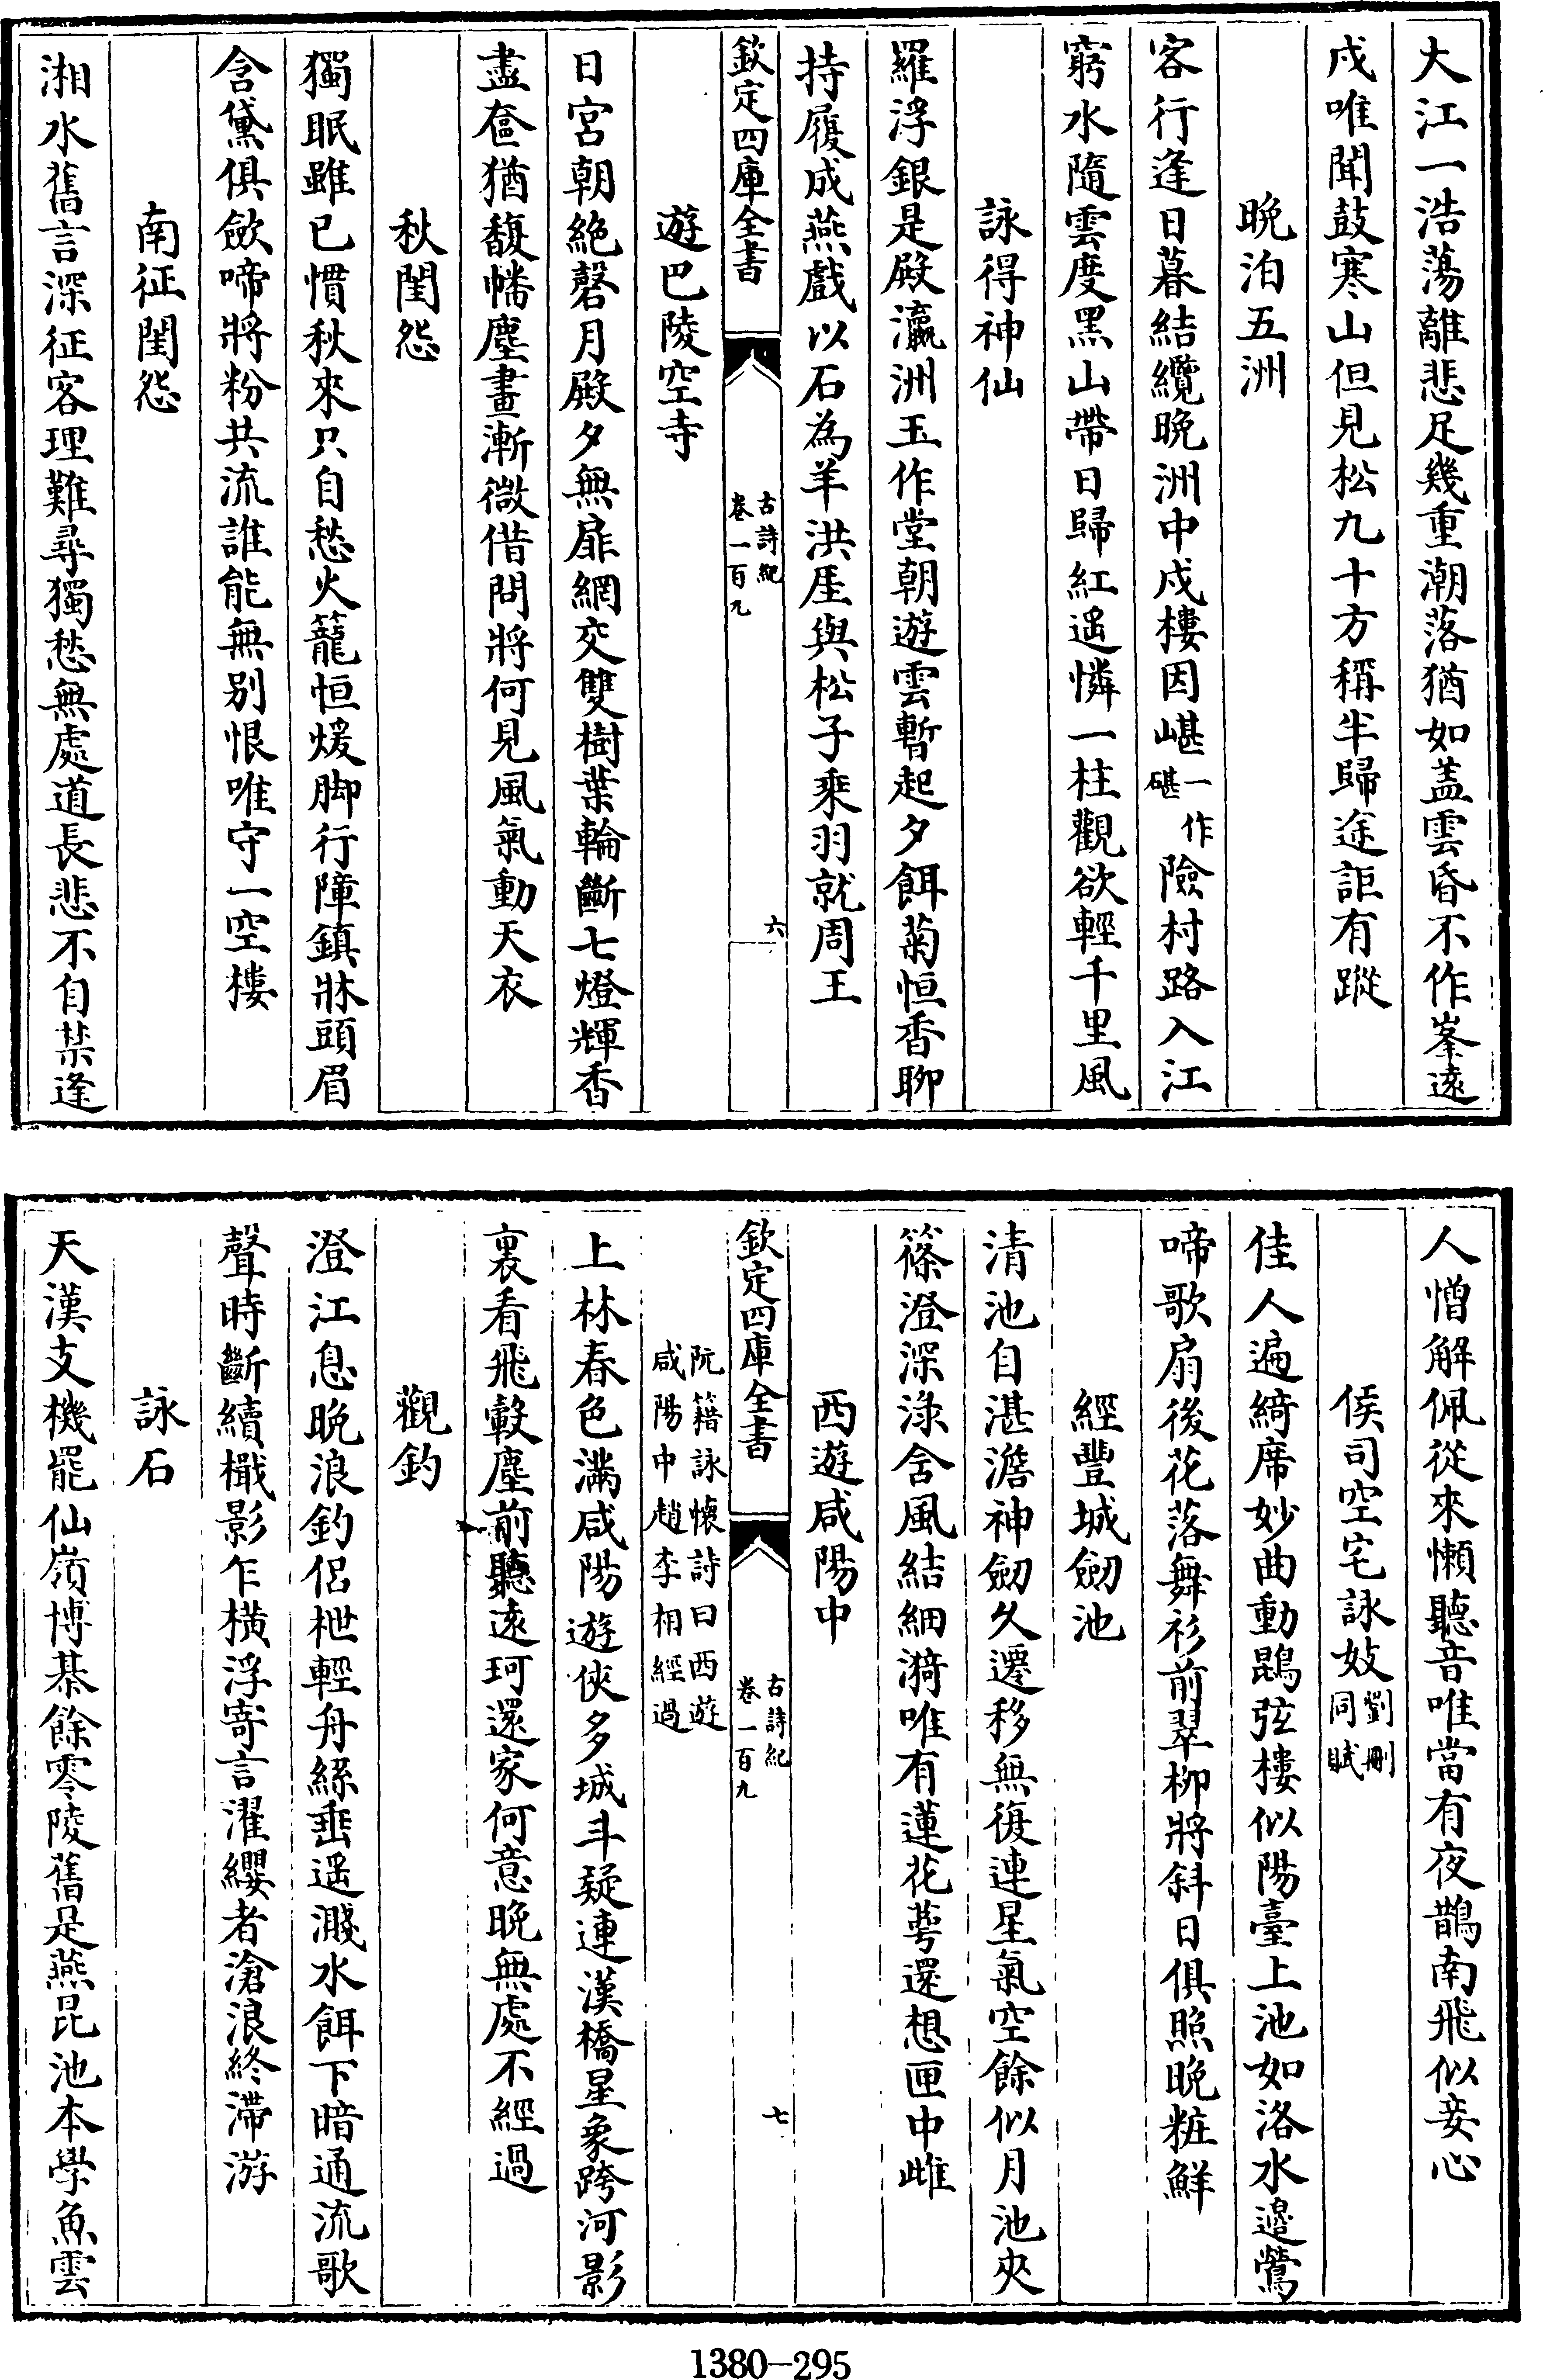 大江一浩蕩離悲足幾重潮落猶如盖雲昏不作峯遠
戍唯聞鼓寒山但見松九十方稱半歸途詎有蹤
晚泊五洲
客行逢日暮結纜晚洲中戍樓因嵁一作碪險村路入江
窮水隨雲度黑山帶日歸紅遥憐一柱觀欲輕千里風
詠得神仙
羅浮銀是殿瀛洲玉作堂朝遊雲暫起夕餌菊恒香聊
持履成燕戲以石為羊洪厓與松子乘羽就周王
欽定四庫全書
古詩紀
卷一百九
六
遊巴陵空寺
日宮朝絶磬月殿夕無扉網交雙樹葉輪斷七燈輝香
盡奩猶馥幡塵畫漸微借問將何見風氣動天衣
秋閨怨
獨眠雖已慣秋來只自愁火籠恒煖脚行障鎮牀頭眉
含黛俱歛啼將粉共流誰能無别恨唯守一空樓
南征閨怨
湘水舊言深征客理難尋獨愁無處道長悲不自禁逢
人憎解佩從來懶聽音唯當有夜鵲南飛似妾心
侯司空宅詠妓劉刪同賦
佳人遍綺席妙曲動鵾弦樓似陽臺上池如洛水邉鶯
啼歌扇後花落舞衫前翠柳將斜日俱照晚粧鮮
經豐城劒池
清池自湛澹神劒久遷移無復連星氣空餘似月池夾
篠澄深淥含風結細漪唯有蓮花萼還想匣中雌
西遊咸陽中
欽定四庫全書
古詩紀
卷一百九
七
阮籍詠懷詩曰西遊
咸陽中趙李相經過
上林春色滿咸陽遊俠多城斗疑連漢橋星象跨河影
裏看飛轂塵前聽遠珂還家何意晚無處不經過
觀釣
澄江息晚浪釣侣枻輕舟絲垂遥濺水餌下暗通流歌
聲時斷續檝影乍横浮寄言濯纓者滄浪終滯游
詠石
天漢支機罷仙嶺博棊餘零陵舊是燕昆池本學魚雲
1380—295